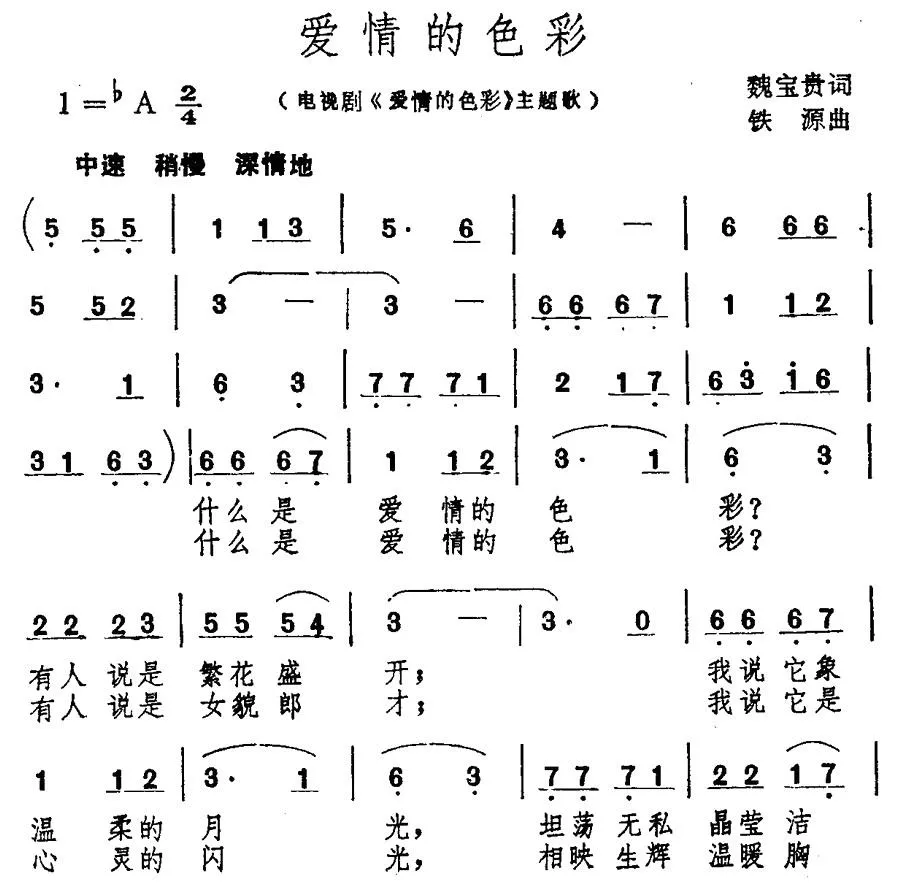 爱情的色彩
1=♭A 2/4
（电视剧《爱情的色彩》主题歌）
魏宝贵词
铁 源曲
中速 稍慢 深情地
(5̣ 5̣ 5̣ | 1 1 3 | 5· 6 | 4 — | 6 6 6 |
5 5 2 | 3 — | 3 — | 6̣ 6̣ 6̣ 7̣ | 1 1 2 |
3· 1 | 6̣ 3̣ | 7̣ 7̣ 7̣ 1 | 2 1 7̣ | 6̣ 3̇ 1̇ 6 |
3 1 6̣ 3̣) | 6̣ 6̣ 6̣ 7̣ | 1 1 2 | 3· 1 | 6̣ 3̣ |
什么是 爱 情的 色 彩？
什么是 爱 情的 色 彩？
2 2 2 3 | 5 5 5 4 | 3 — | 3· 0 | 6̣ 6̣ 6̣ 7̣ |
有人 说是 繁花 盛 开； 我说 它象
有人 说是 女貌 郎 才； 我说 它是
1 1 2 | 3· 1 | 6̣ 3̣ | 7̣ 7̣ 7̣ 1 | 2 2 1 7̣ |
温 柔的 月 光， 坦荡 无私 晶莹 洁
心 灵的 闪 光， 相映 生辉 温暖 胸